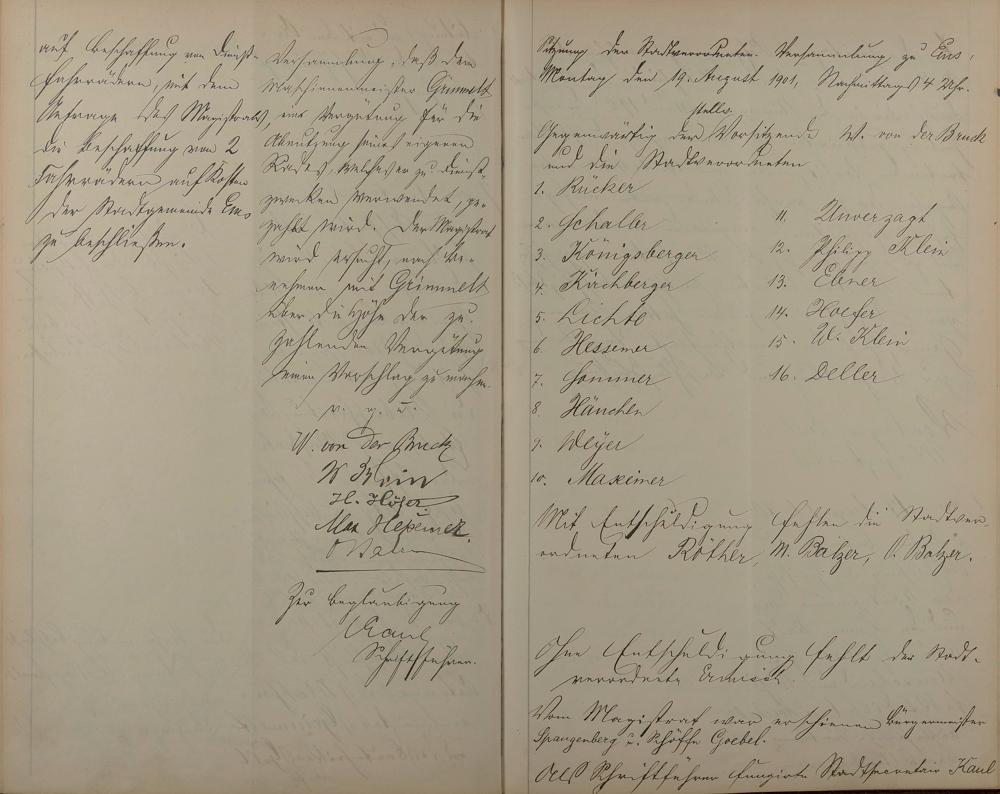 auf Beschaffung von Dienst-
fahrrädern, mit dem
Anfrage des Magistrats,
die Beschaffung von 2
Fahrrädern auf Kosten
der Stadtgemeinde Ems
zu beschließen.
Versammlung, daß dem
Maschinenmeister Grimmelt
eine Vergütung für die
Abnutzung seines eigenen
Rades, welches er zu Dienst-
zwecken verwendet, ge-
zahlt wird. Der Magistrat
wird ersucht, nach Be-
nehmen mit Grimmelt
über die Höhe der zu
zahlenden Vergütung
einen Vorschlag zu machen.
v. g. u.
W. von der Bruck
W Klein
H. Höfer
Max Hessemer
O Balzer
Zur Beglaubigung
Kaul
Schriftführer.
Sitzung der Stadtverordneten-Versammlung zu Ems,
Montag den 19. August 1901, Nachmittags 4 Uhr.
stellv.
Gegenwärtig der Vorsitzende W. von der Bruck
und die Stadtverordneten
1. Rücker
2. Schaller
3. Königsberger
4. Kirchberger
5. Lichte
6. Hessemer
7. Sommer
8. Hänchen
9. Weyer
10. Maxeiner
11. Unverzagt
12. Philipp Klein
13. Ebner
14. Hoefer
15. W. Klein
16. Deller
Mit Entschuldigung fehlen die Stadtver-
ordneten Röther, M. Balzer, O. Balzer.
Ohne Entschuldigung fehlt der Stadt-
verordnete Ermisch.
Vom Magistrat war erschienen Bürgermeister
Spangenberg u. Schöffe Goebel.
Als Schriftführer fungirte Stadtsecretair Kaul